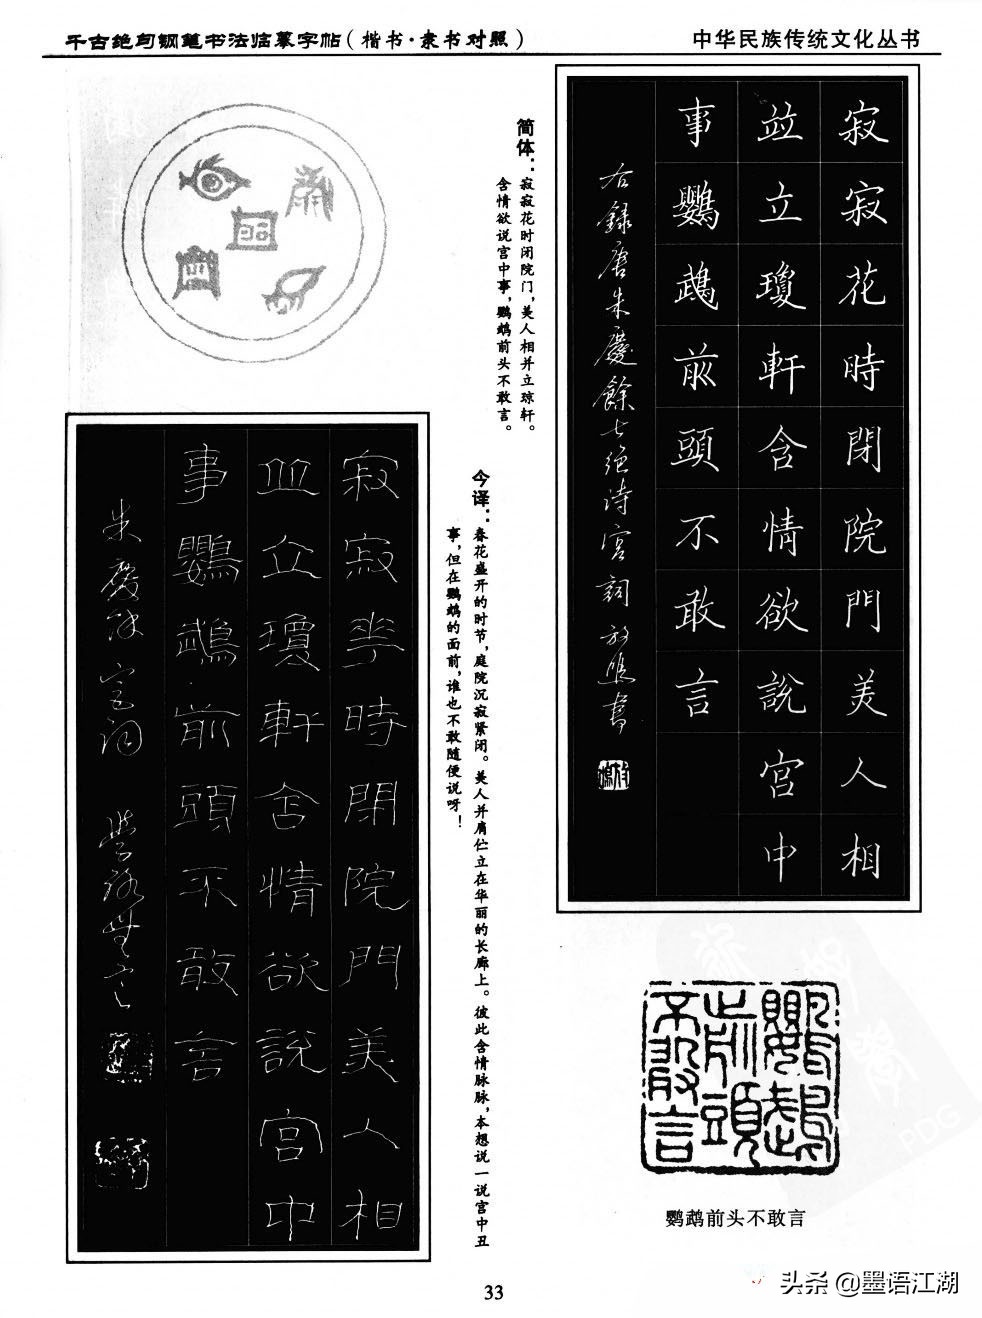 千古绝句钢笔书法临摹字帖(楷书·隶书对照)
中华民族传统文化丛书
寂寂花時閉院門美人相
並立瓊軒含情欲說宮中
事鸚鵡前頭不敢言
右録唐朱慶餘七絕诗宮詞
简体：寂寂花时闭院门，美人相并立琼轩。
含情欲说宫中事，鹦鹉前头不敢言。
今译：春花盛开的时节，庭院沉寂紧闭。美人并肩伫立在华丽的长廊上。彼此含情脉脉，本想说一说宫中丑
事，但在鹦鹉的面前，谁也不敢随便说呀！
寂寂華時閉院門美人相
並立瓊軒含情欲說宮中
事鸚鵡前頭不敢言
朱慶餘宮词
鸚鵡
前頭
不敢言
鹦鹉前头不敢言
33
头条 @墨语江湖